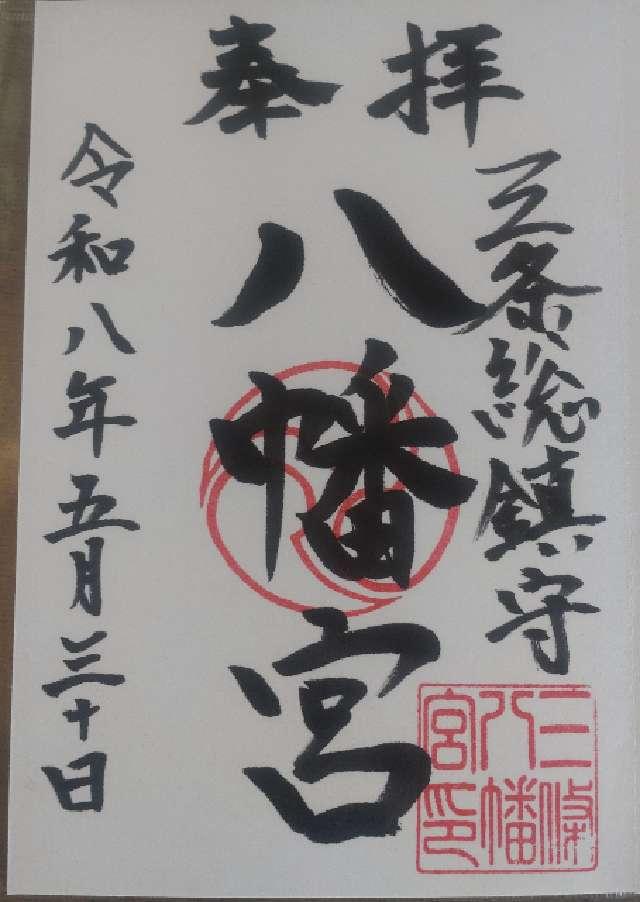 奉拝
三条総鎮守
八幡宮
令和八年五月三十日
三條
八幡
宮印